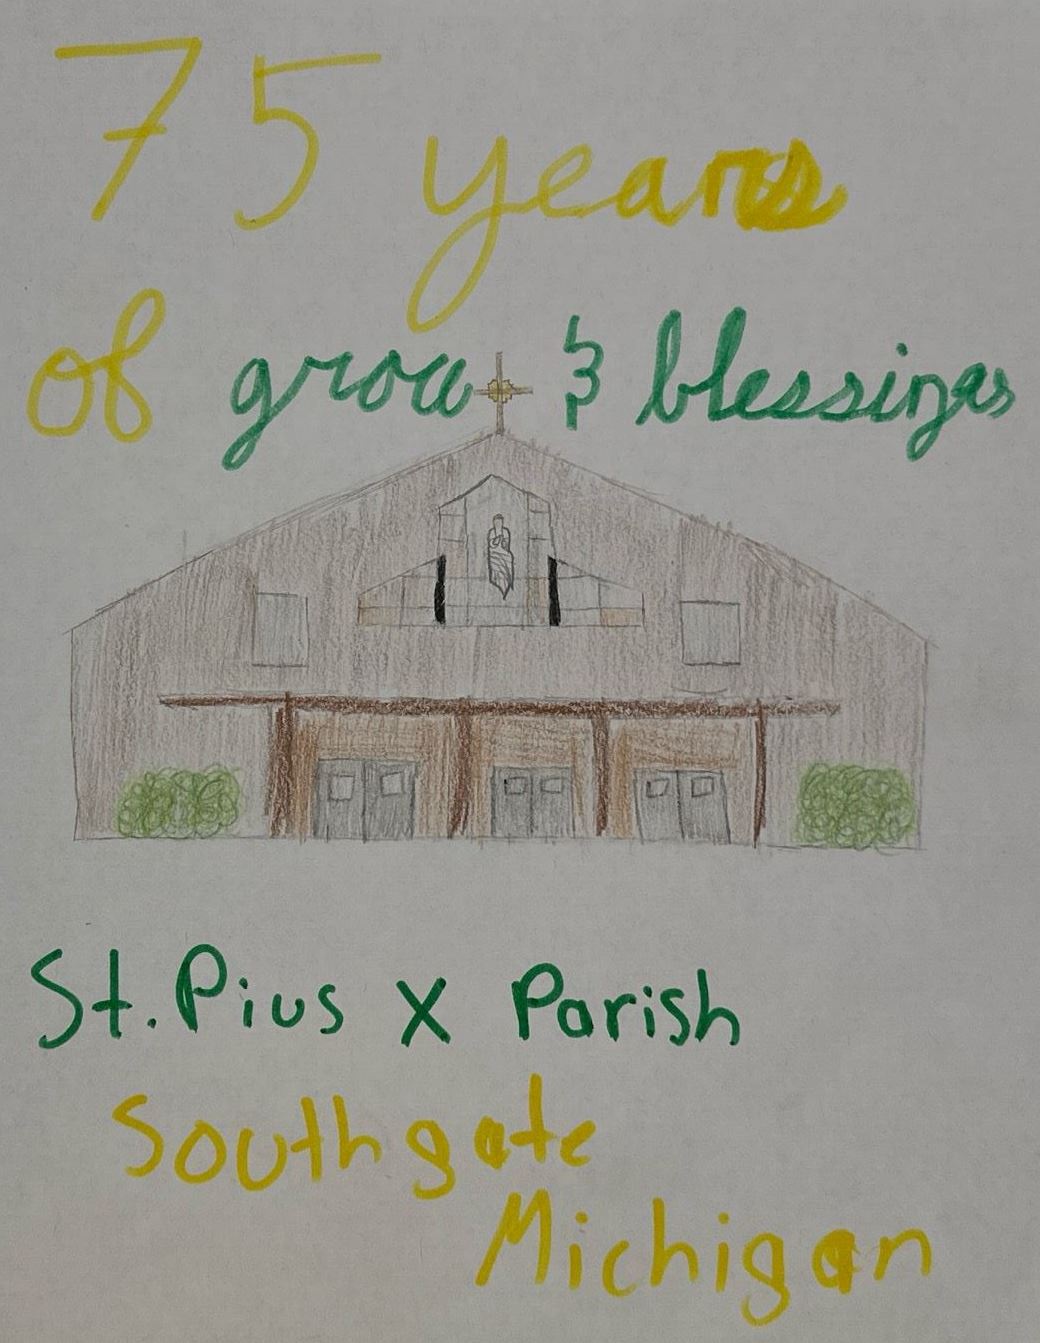 75 years
of grace & blessings
St. Pius X Parish
Southgate
Michigan